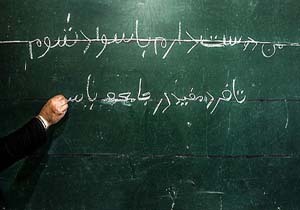 من دوست دارم باسواد شوم
تا فرد مفیددر جامعه باشم